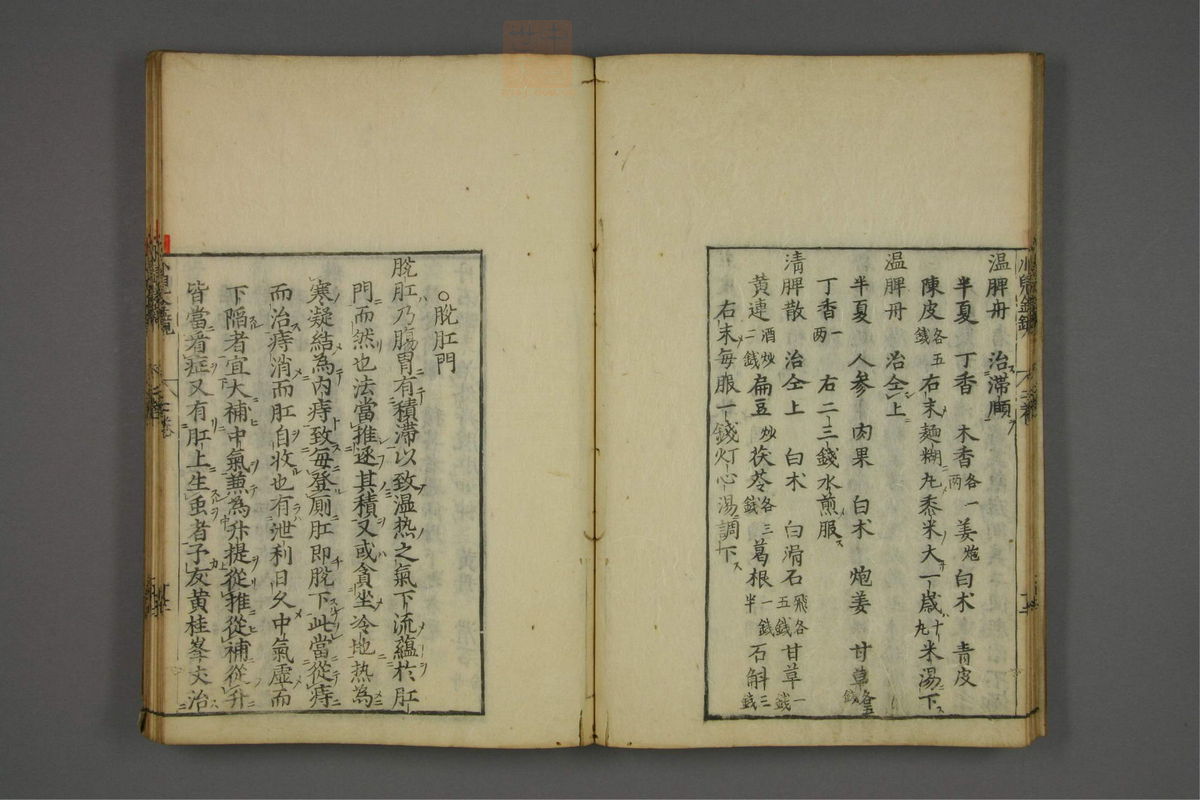 温脾丹　治滯頤
半夏　丁香　木香各一两　姜炮　白术　青皮
陳皮各五錢　右末麵糊丸黍米大一歳十丸米湯下
温脾丹　治仝上
半夏　人参　肉果　白术　炮姜　甘草各五錢
丁香一两　右二三錢水煎服
清脾散　治仝上　白术　白滑石飛各五錢　甘草一錢
黄連酒炒二錢　扁豆炒　茯苓各三錢　葛根一錢半　石斛三錢
右末毎服一錢灯心湯調下
○脫肛門
脫肛乃腸胃有積滯以致温热之氣下流蘊於肛
門而然也法當推逐其積又或貪坐冷地热為
寒凝結為内痔致毎登厠肛即脫下此當從痔
而治痔消而肛自收也有泄利日久中氣虚而
下陷者宜大補中氣兼為升提從推從補從升
皆當看症又有肛上生虫者予友黄桂峯丈治